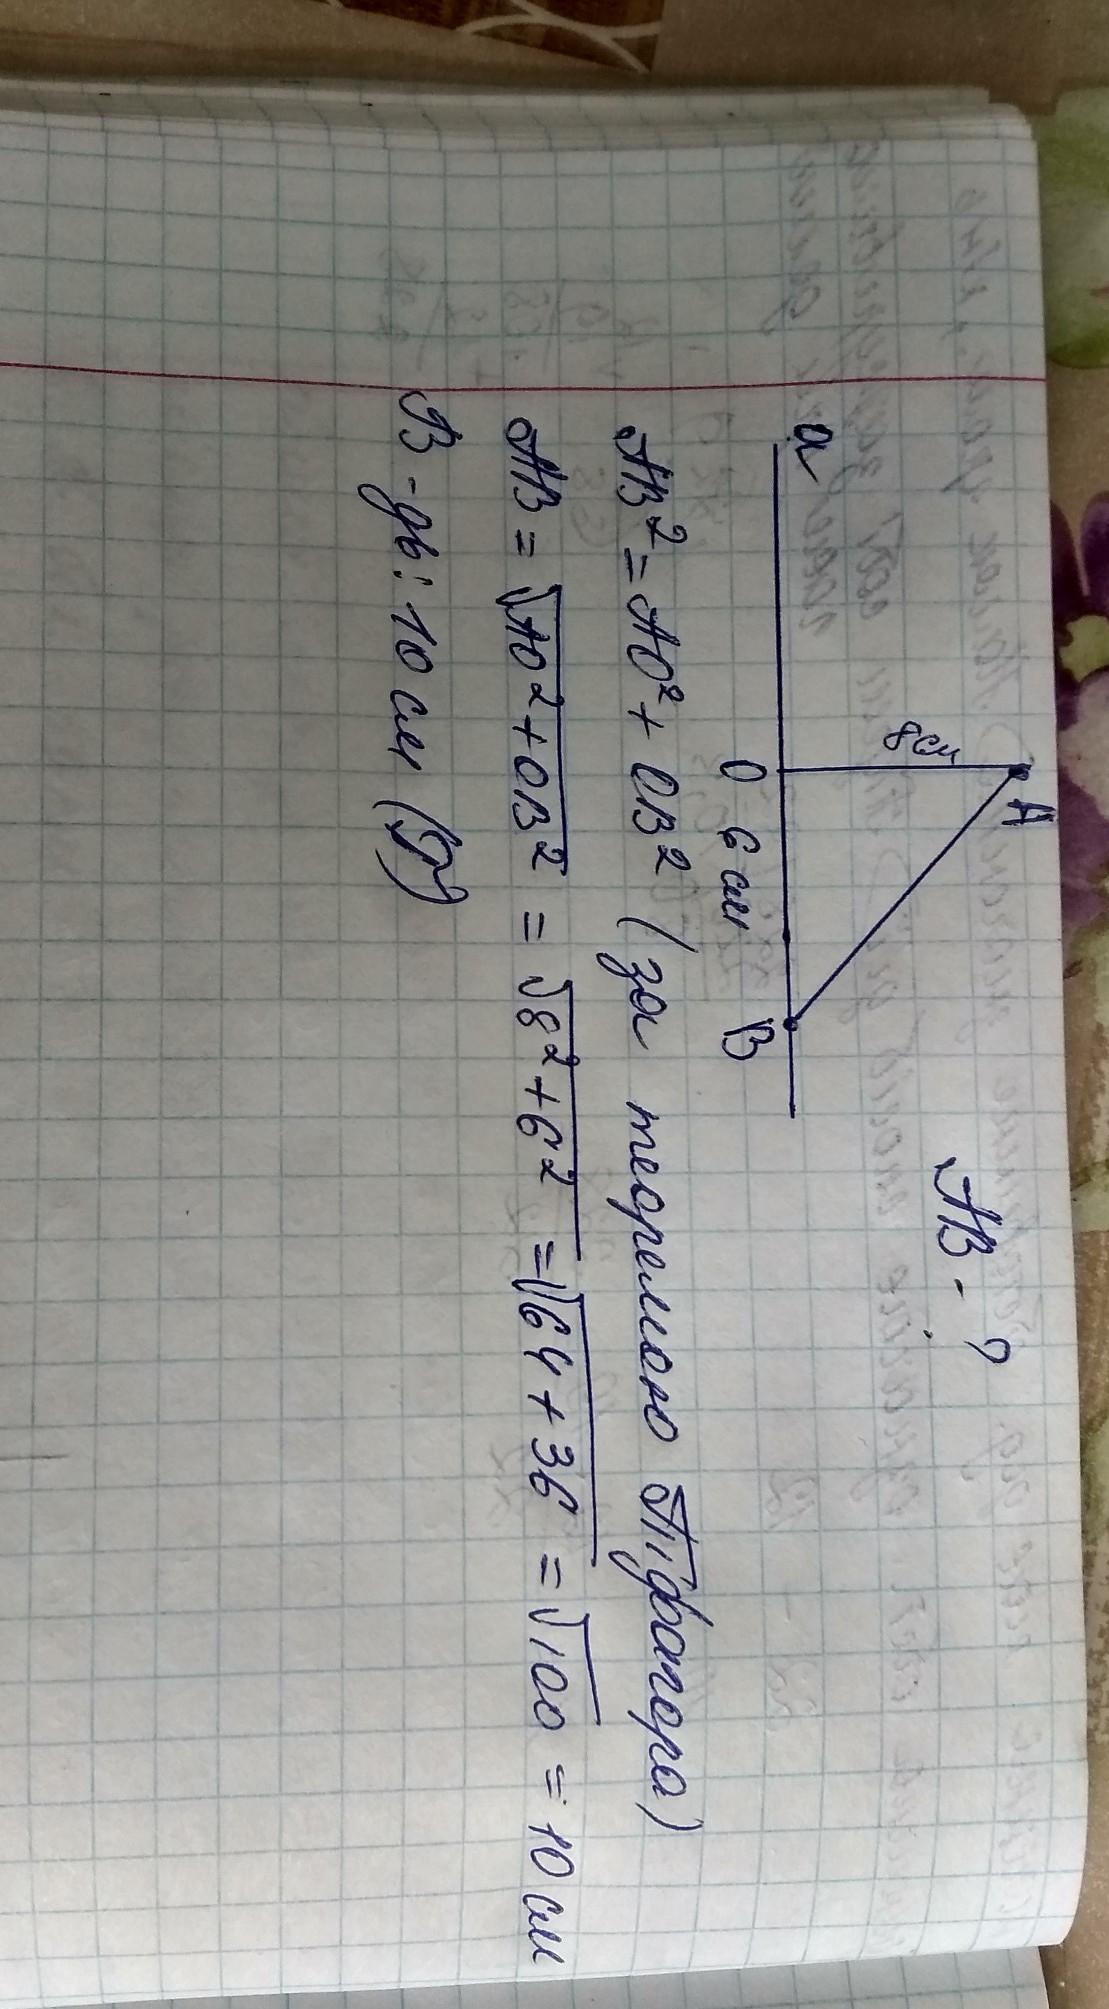 A
AB - ?
8см
a
O 6 см B
AB² = AO² + OB² (за теоремою Піфагора)
AB = √AO² + OB² = √8² + 6² = √64 + 36 = √100 = 10 см
В-дь: 10 см (Г)